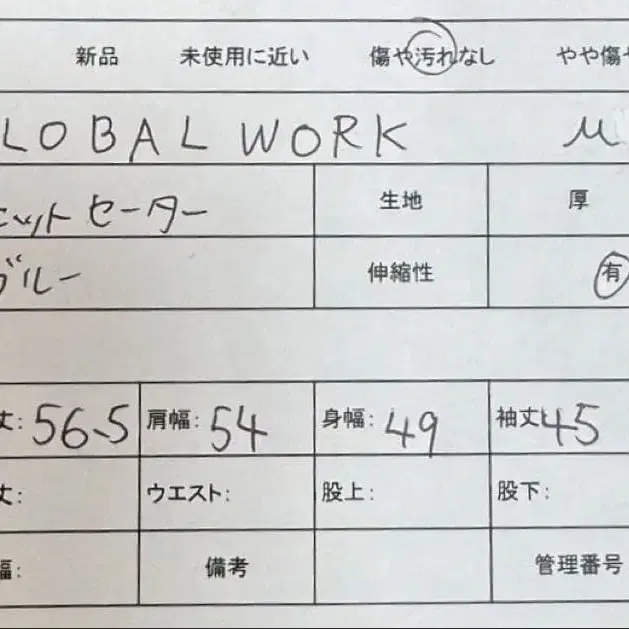 新品 未使用に近い 傷や汚れなし やや傷や
LOBAL WORK M
ニットセーター 生地 厚
ブルー 伸縮性 有
丈: 56.5 肩幅: 54 身幅: 49 袖丈 45
丈: ウエスト: 股上: 股下:
幅: 備考 管理番号